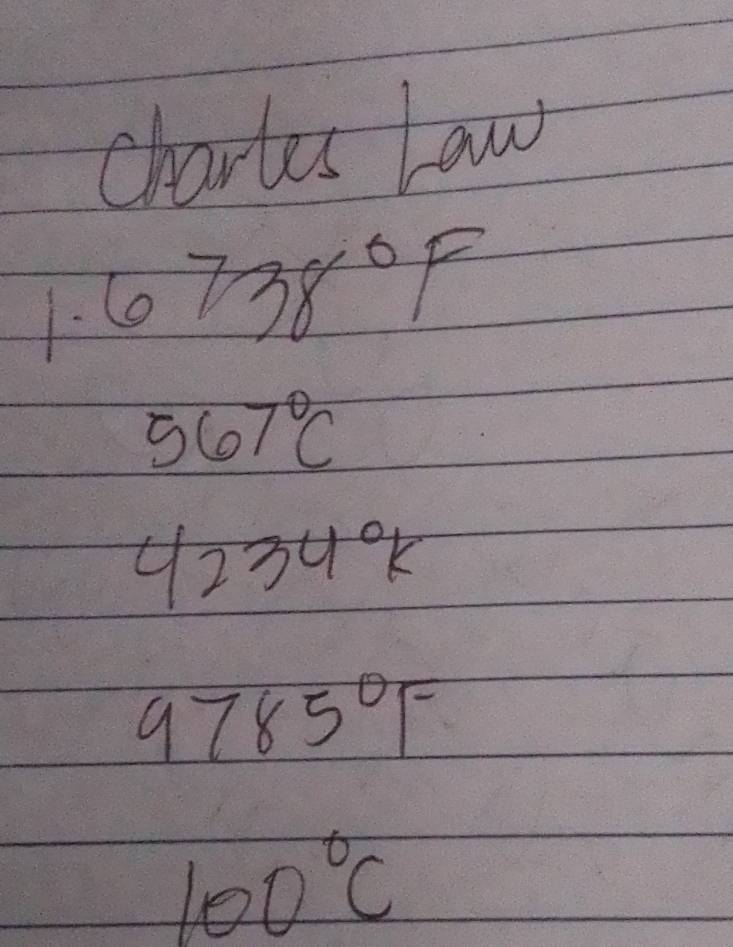 Charles Law
1.6738°F
567°C
4234°K
9785°F
100°C